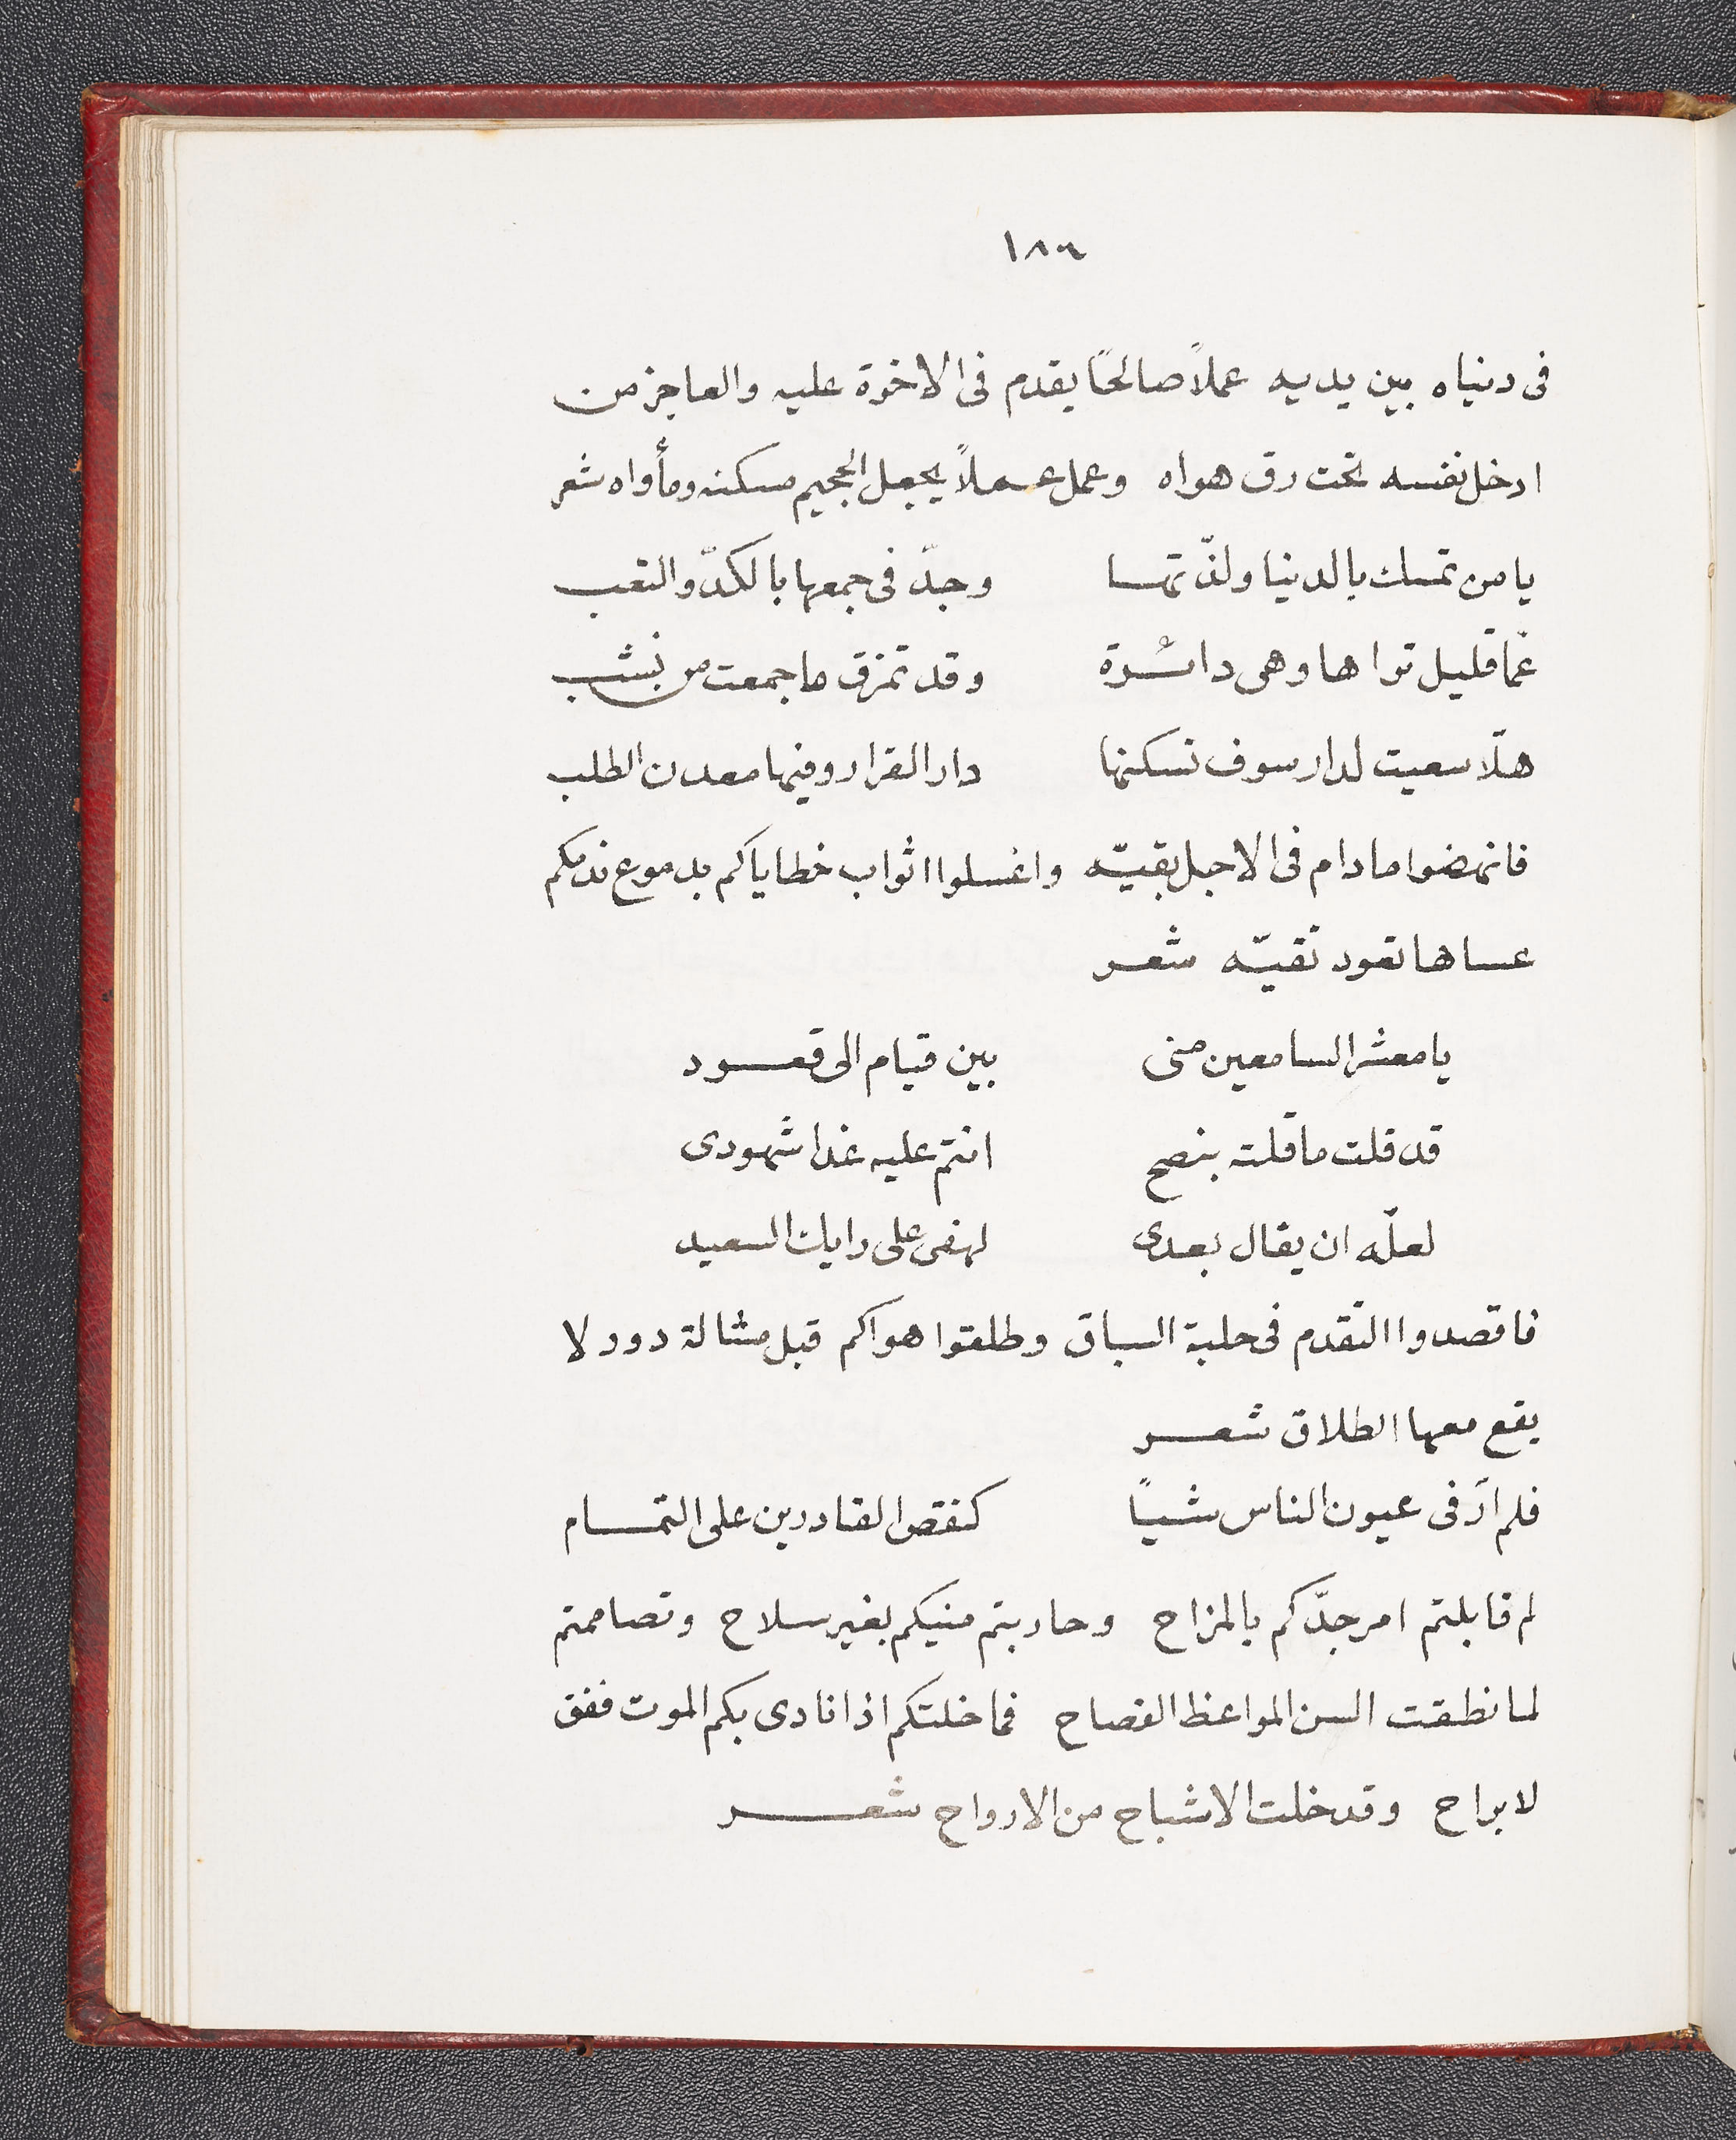 ١٨٦
فى دنياه بين يديه عملاً صالحًا يقدم فى الاخوة عليه والعاجز من
ادخل نفسه تحت رق هواه وعمل عملاً يجعل الجحيم مسكنه ومأواه شعر
يا من تمسك بالدنيا ولذّتها وجدّ فى جمعها بالكدّ والتعب
عمّا قليل تواها وهى دائرة وقد تمزق ما جمعت من نشب
هلّا سعيت لدار سوف تسكنها دار القرار وفيها معدن الطلب
فانهضوا ما دام فى الاجل بقيّه واغسلوا اثواب خطاياكم بدموع ندمكم
عساها تعود نقيّه شعر
يا معشر السامعين منى بين قيام الى قعود
قد قلت ما قلته بنصح انتم عليه غدا شهودى
لعلّه ان يقال بعدى لهفى على رايك السعيد
فاقصدوا التقدم فى حلبة السباق وطلقوا هواكم قبل مشالة دور لا
يقع معها الطلاق شعر
فلم ارَ فى عيون الناس شيئًا كنقص القادرين على التمام
لم قابلتم امر جدّكم بالمزاح وحاربتم منيكم بغير سلاح وتصاممتم
لما نطقت السن المواعظ الفصاح فما خلتكم اذا نادى بكم الموت ففق
لا براح وقد خلت الاشباح من الارواح شعر